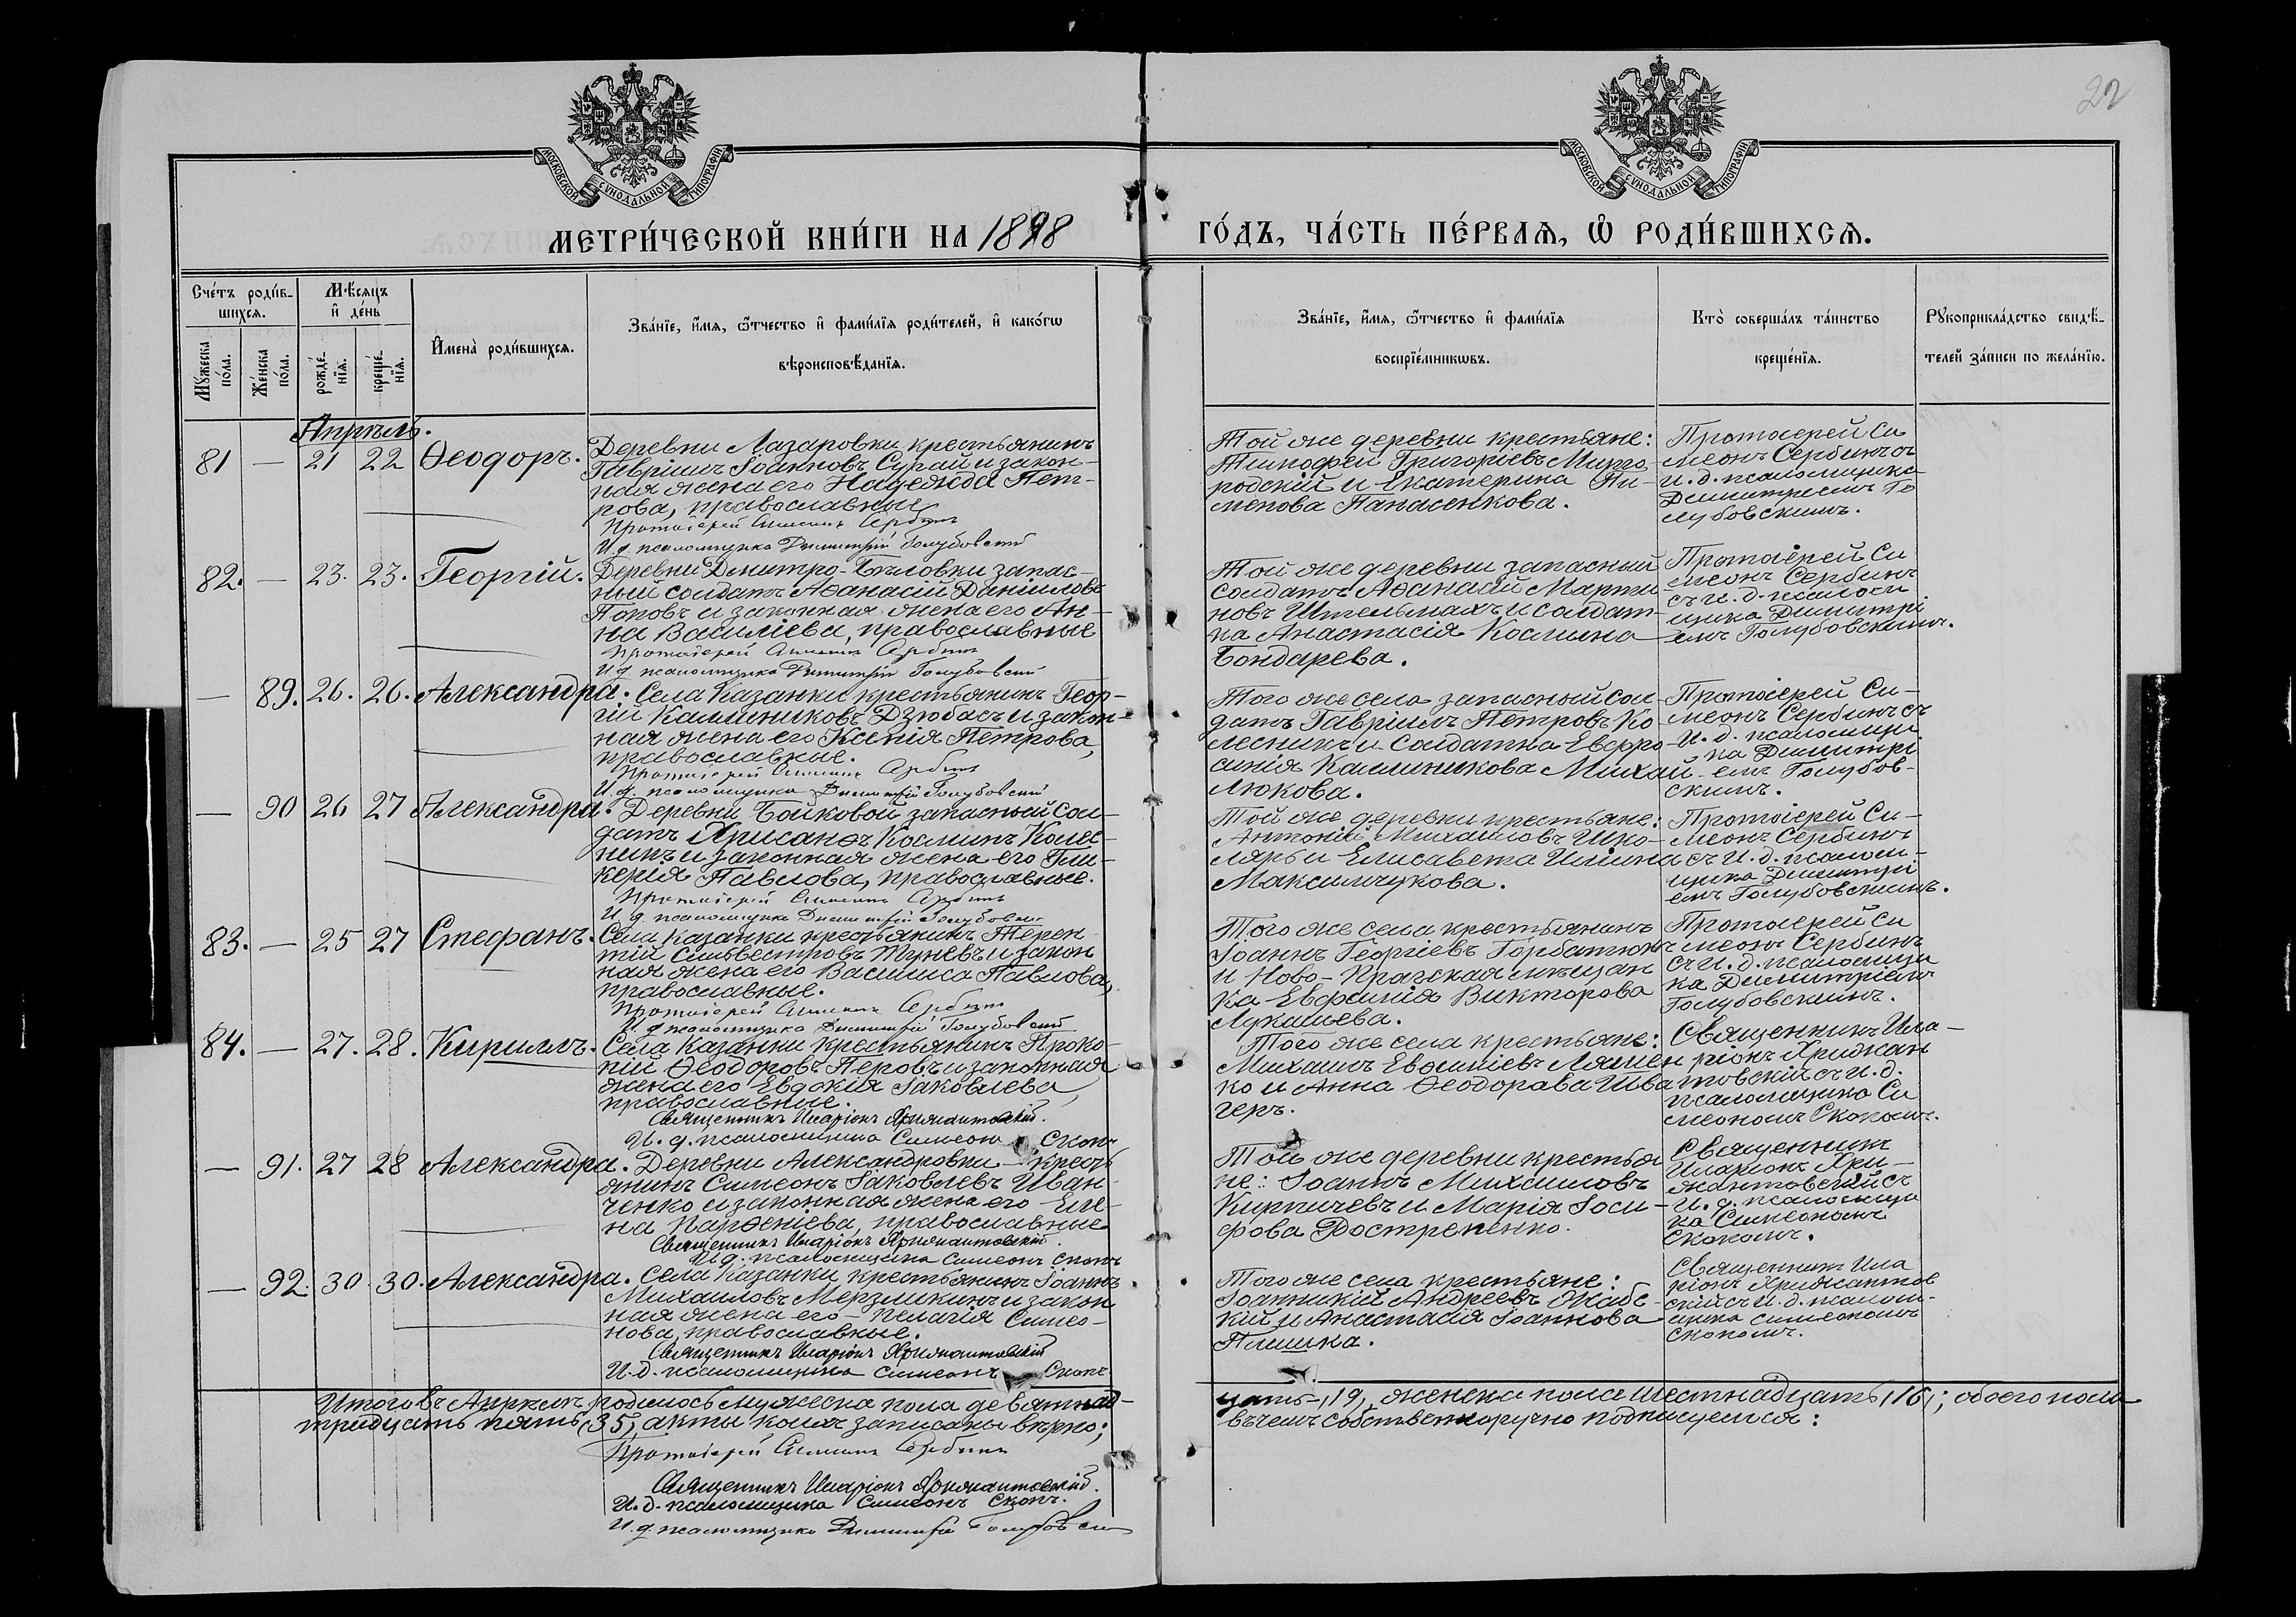 22
МОСКОВСКОЙ СУНОДАЛЬНОЙ ТИПОГРАФИИ
МОСКОВСКОЙ СУНОДАЛЬНОЙ ТИПОГРАФИИ
МЕТРИ́ЧЕСКОЙ КНИ́ГИ НА 1898
ГО́ДЪ, ЧА́СТЬ ПЕ́РВАѦ, Ѡ҆ РОДИ́ВШИХСѦ.
Сче́тъ роди́в-
шихсѧ.
Мꙋ́жеска
по́ла.
Же́нска
по́ла.
Мѣ́сѧцъ
и҆ де́нь
рожде́-
нїѧ.
креще́-
нїѧ.
И҆мена̀ роди́вшихсѧ.
Зва́нїе, и҆́мѧ, ѻ҆́тчество и҆ фами́лїѧ роди́телей, и҆ како́гѡ
вѣроисповѣ́данїѧ.
Зва́нїе, и҆́мѧ, ѻ҆́тчество и҆ фами́лїѧ
воспрїе́мникѡвъ.
Кто̀ соверша́лъ та́инство
креще́нїѧ.
Рꙋкоприкла́дство свидѣ́-
телей за́писи по жела́нїю.
Апрѣль.
81 — 21 22 Ѳеодоръ.
Деревни Лазаровки крестьянинъ
Гавріилъ Іоанновъ Сугай и закон-
ная жена его Надежда Пет-
рова, православные
Протоіерей Симеонъ Сербинъ
И. д. псаломщика Димитрій Голубовскій
Той же деревни крестьяне:
Тимофей Григоріевъ Мирго-
родскій и Екатерина Пи-
менова Панасенкова.
Протоіерей Си
меонъ Сербинъ съ
и. д. псаломщика
Димитріемъ Го
лубовскимъ.
82. — 23. 23. Георгій.
Деревни Димитро-Бѣловки запас-
ный солдатъ Аѳанасій Даніиловъ
Поповъ и законная жена его Ан-
на Василіева, православные
Протоіерей Симеонъ Сербинъ
И. д. псаломщика Димитрій Голубовскій
Той же деревни запасный
солдатъ Аѳанасій Марти
новъ Штельмахъ и солдат-
ка Анастасія Космина
Бондарева.
Протоіерей Си
меонъ Сербинъ
съ и. д. псалом
щика Димитрі
емъ Голубовскимъ.
— 89. 26. 26. Александра.
Села Казанки крестьянинъ Геор-
гій Каллиниковъ Дзюбасъ и закон-
ная жена его Ксенія Петрова,
православные.
Протоіерей Симеонъ Сербинъ
И. д. псаломщика Димитрій Голубовскій
Того же села запасный сол
датъ Гавріилъ Петровъ Ко
лесникъ и солдатка Евфро-
синія Каллиникова Михай
люкова.
Протоіерей Си-
меонъ Сербинъ съ
и. д. псаломщи
ка Димитрі
емъ Голубов-
скимъ.
— 90 26 27 Александра.
Деревни Бойковой запасный сол-
датъ Хрисанѳъ Косминъ Колес-
никъ и законная жена его Гли-
керія Павлова, православные.
Протоіерей Симеонъ Сербинъ
И. д. псаломщика Димитрій Голубовскій
Той же деревни крестьяне:
Антоній Михаиловъ Шко-
ляръ и Елисавета Иліина
Максимчукова.
Протоіерей Си-
меонъ Сербинъ
съ и. д. псалом-
щика Димитрі
емъ Голубовскимъ.
83. — 25 27 Стефанъ.
Села Казанки крестьянинъ Терен-
тій Сильвестровъ Туневъ и закон
ная жена его Василиса Павлова,
православные.
Протоіерей Симеонъ Сербинъ
И. д. псаломщика Димитрій Голубовскій
Того же села крестьянинъ
Іоаннъ Георгіевъ Горбатюкъ
и Ново-Прагская мѣщан
ка Евфимія Викторова
Лукашева.
Протоіерей Си
меонъ Сербинъ
съ и. д. псаломщи
ка Димитріемъ
Голубовскимъ.
84. — 27. 28. Кириллъ.
Села Казанки крестьянинъ Проко-
пій Ѳеодоровъ Перовъ и законная
жена его Евдокія Іаковлева,
православные.
Священникъ Иларіонъ Крижантовскій.
И. д. псаломщика Симеонъ Скопъ
Того же села крестьяне:
Михаилъ Евѳиміевъ Ляшен
ко и Анна Ѳеодорова Шва
геръ.
Священникъ Ила-
ріонъ Крижан
товскій съ и. д.
псаломщика Си
меономъ Скопомъ.
— 91. 27 28 Александра.
Деревни Александровки кресть
янинъ Симеонъ Іаковлевъ Иван-
ченко и законная жена его Еле-
на Парѳеніева, православные
Священникъ Иларіонъ Крижантовскій.
И. д. псаломщика Симеонъ Скопъ
Той же деревни крестья
не: Іоаннъ Михаиловъ
Кирпичевъ и Марія Іоси-
фова Достременко.
Священникъ
Иларіонъ Кри-
жантовскій съ
и. д. псаломщи
ка Симеономъ
Скопомъ.
— 92. 30. 30. Александра.
Села Казанки крестьянинъ Іоаннъ
Михаиловъ Мерзликинъ и закон
ная жена его Пелагія Симео-
нова, православные.
Священникъ Иларіонъ Крижантовскій
И. д. псаломщика Симеонъ Скопъ
Того же села крестьяне:
Іоанникій Андреевъ Жабс-
кій и Анастасія Іоаннова
Плишка.
Священникъ Ила
ріонъ Крижантов
скій съ и. д. псалом-
щика Симеономъ
Скопомъ.
Итого въ Апрѣлѣ родилось мужеска пола девятнад-
цать, 19, женска пола шестнадцать, 16; обоего пола
тридцать пять, 35, акты коихъ записаны вѣрно;
въ чемъ собственноручно подписуемся:
Протоіерей Симеонъ Сербинъ
Священникъ Иларіонъ Крижантовскій.
И. д. псаломщика Симеонъ Скопъ.
И. д. псаломщика Димитрій Голубовскій